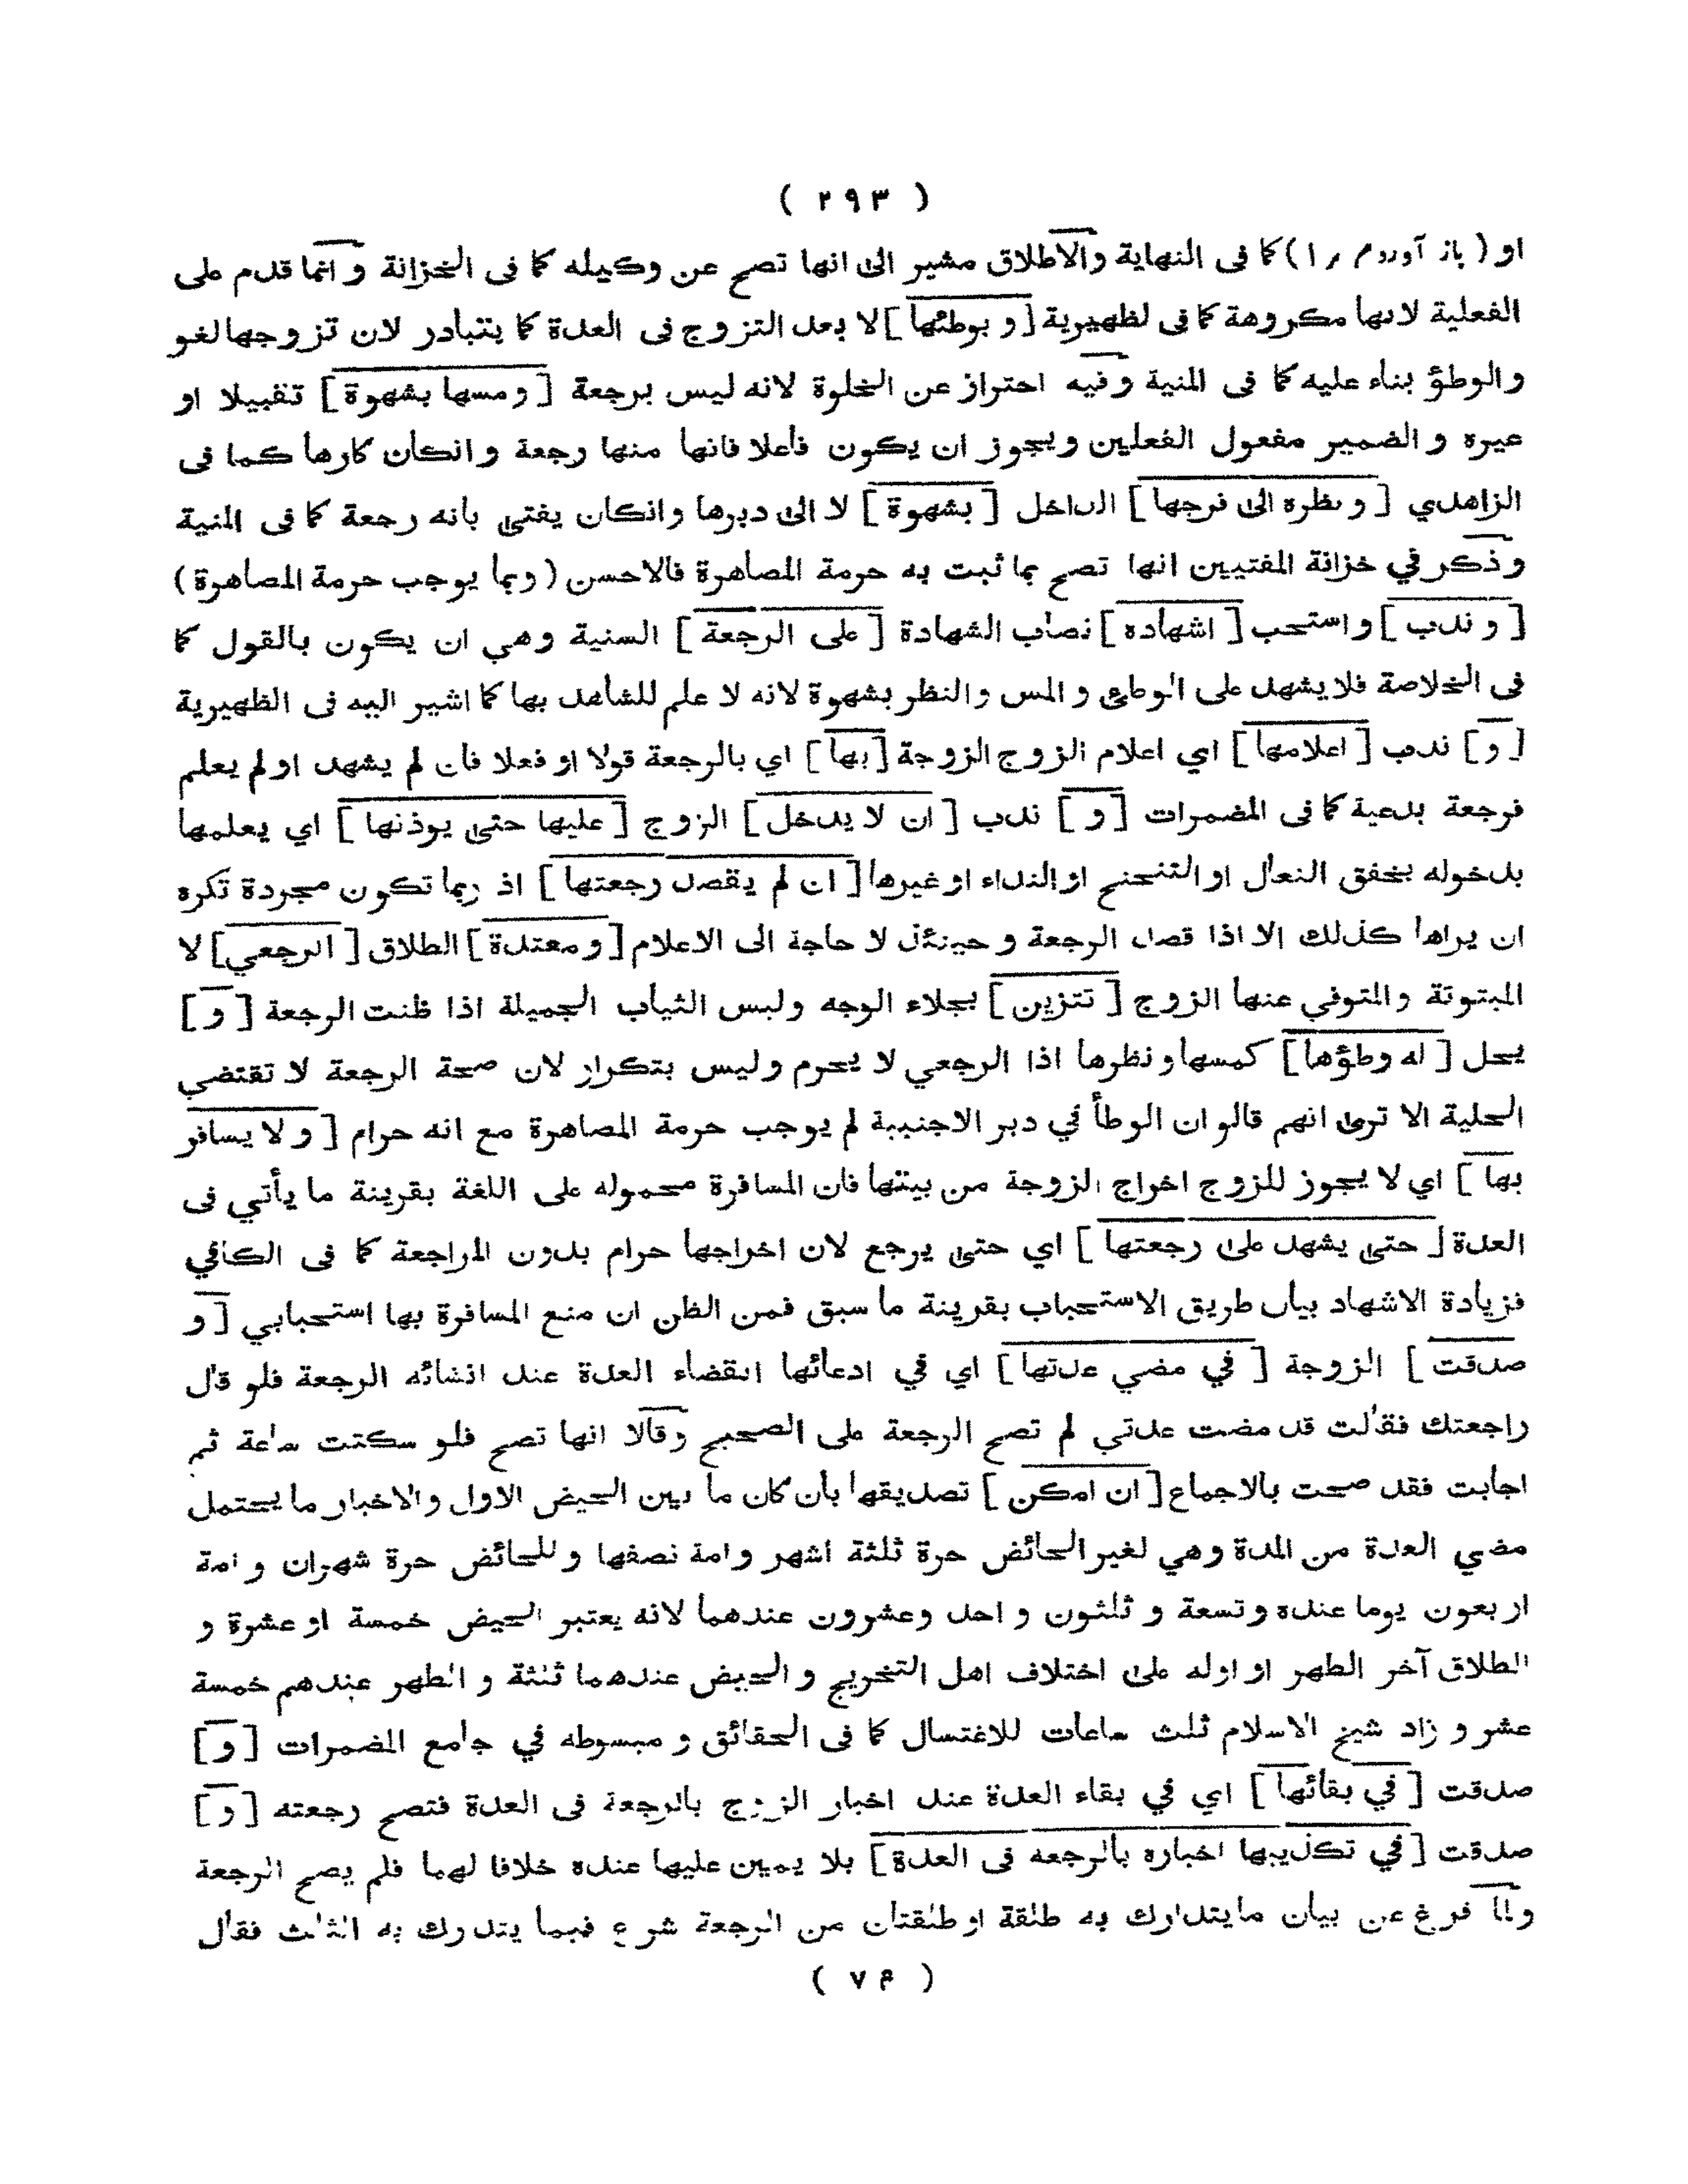 ( ٢٩٣ )
او ( باز آوردم را ) كما فى النهاية والاطلاق مشير الى انها تصح عن وكيله كما فى الخزانة و انما قدم على
الفعلية لانها مكروهة كما فى لظهيرية [ و بوطئها ] لا بعد التزوج فى العدة كما يتبادر لان تزوجها لغو
والوطؤ بناء عليه كما فى المنية وفيه احتراز عن الخلوة لانه ليس برجعة [ ومسها بشهوة ] تقبيلا او
غيره و الضمير مفعول الفعلين ويجوز ان يكون فاعلا فانها منها رجعة وانكان كارها كما فى
الزاهدي [ ونظره الى فرجها ] الداخل [ بشهوة ] لا الى دبرها وانكان يفتى بانه رجعة كما فى المنية
وذكر في خزانة المفتيين انها تصح بما ثبت به حرمة المصاهرة فالاحسن ( وبما يوجب حرمة المصاهرة )
[ و ندب ] واستحب [ اشهاده ] نصاب الشهادة [ على الرجعة ] السنية وهي ان يكون بالقول كما
فى الخلاصة فلا يشهد على الوطئ و المس والنظر بشهوة لانه لا علم للشاهد بها كما اشير اليه فى الظهيرية
[ و ] ندب [ اعلامها ] اي اعلام الزوج الزوجة [ بها ] اي بالرجعة قولا او فعلا فان لم يشهد اولم يعلم
فرجعة بدعية كما فى المضمرات [ و ] ندب [ ان لا يدخل ] الزوج [ عليها حتى يوذنها ] اي يعلمها
بدخوله بخفق النعال او التنحنح او النداء او غيرها [ ان لم يقصد رجعتها ] اذ ربما تكون مجردة تكره
ان يراها كذلك الا اذا قصد الرجعة و حينئذ لا حاجة الى الاعلام [ و معتدة ] الطلاق [ الرجعي ] لا
المبتوتة والمتوفي عنها الزوج [ تتزين ] بجلاء الوجه ولبس الثياب الجميلة اذا ظنت الرجعة [ و ]
يحل [ له وطؤها ] كمسها ونظرها اذا الرجعي لا يحرم وليس بتكرار لان صحة الرجعة لا تقتضي
الحلية الا ترى انهم قالو ان الوطأ في دبر الاجنبية لم يوجب حرمة المصاهرة مع انه حرام [ و لا يسافر
بها ] اي لا يجوز للزوج اخراج الزوجة من بيتها فان المسافرة محموله على اللغة بقرينة ما يأتي فى
العدة [ حتى يشهد على رجعتها ] اي حتى يرجع لان اخراجها حرام بدون المراجعة كما فى الكافي
فزيادة الاشهاد بيان طريق الاستحباب بقرينة ما سبق فمن الظن ان منع المسافرة بها استحبابي [ و
صدقت ] الزوجة [ في مضي عدتها ] اي في ادعائها انقضاء العدة عند انشائه الرجعة فلو قال
راجعتك فقالت قد مضت عدتي لم تصح الرجعة على الصحيح وقالا انها تصح فلو سكتت ساعة ثم
اجابت فقد صحت بالاجماع [ ان امكن ] تصديقها بأن كان ما بين الحيض الاول والاخبار ما يحتمل
مضي العدة من المدة وهي لغير الحائض حرة ثلثة اشهر وامة نصفها وللحائض حرة شهران و امة
اربعون يوما عنده وتسعة و ثلثون و احد وعشرون عندهما لانه يعتبر الحيض خمسة او عشرة و
الطلاق آخر الطهر او اوله على اختلاف اهل التخريج و الحيض عندهما ثلثة و الطهر عندهم خمسة
عشر و زاد شيخ الاسلام ثلث ساعات للاغتسال كما فى الحقائق و مبسوطه في جامع المضمرات [ و ]
صدقت [ في بقائها ] اي في بقاء العدة عند اخبار الزوج بالرجعة فى العدة فتصح رجعته [ و ]
صدقت [ في تكذيبها اخباره بالرجعه فى العدة ] بلا يمين عليها عنده خلافا لهما فلم يصح الرجعة
ولما فرغ عن بيان ما يتدارك به طلقة او طلقتان من الرجعة شرع فيما يتدرك به الثلث فقال
( ٧٤ )